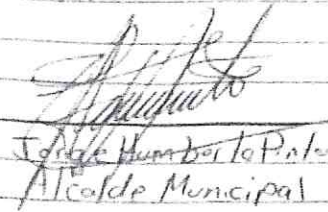 Jorge Humberto Pinto
Alcalde Municipal